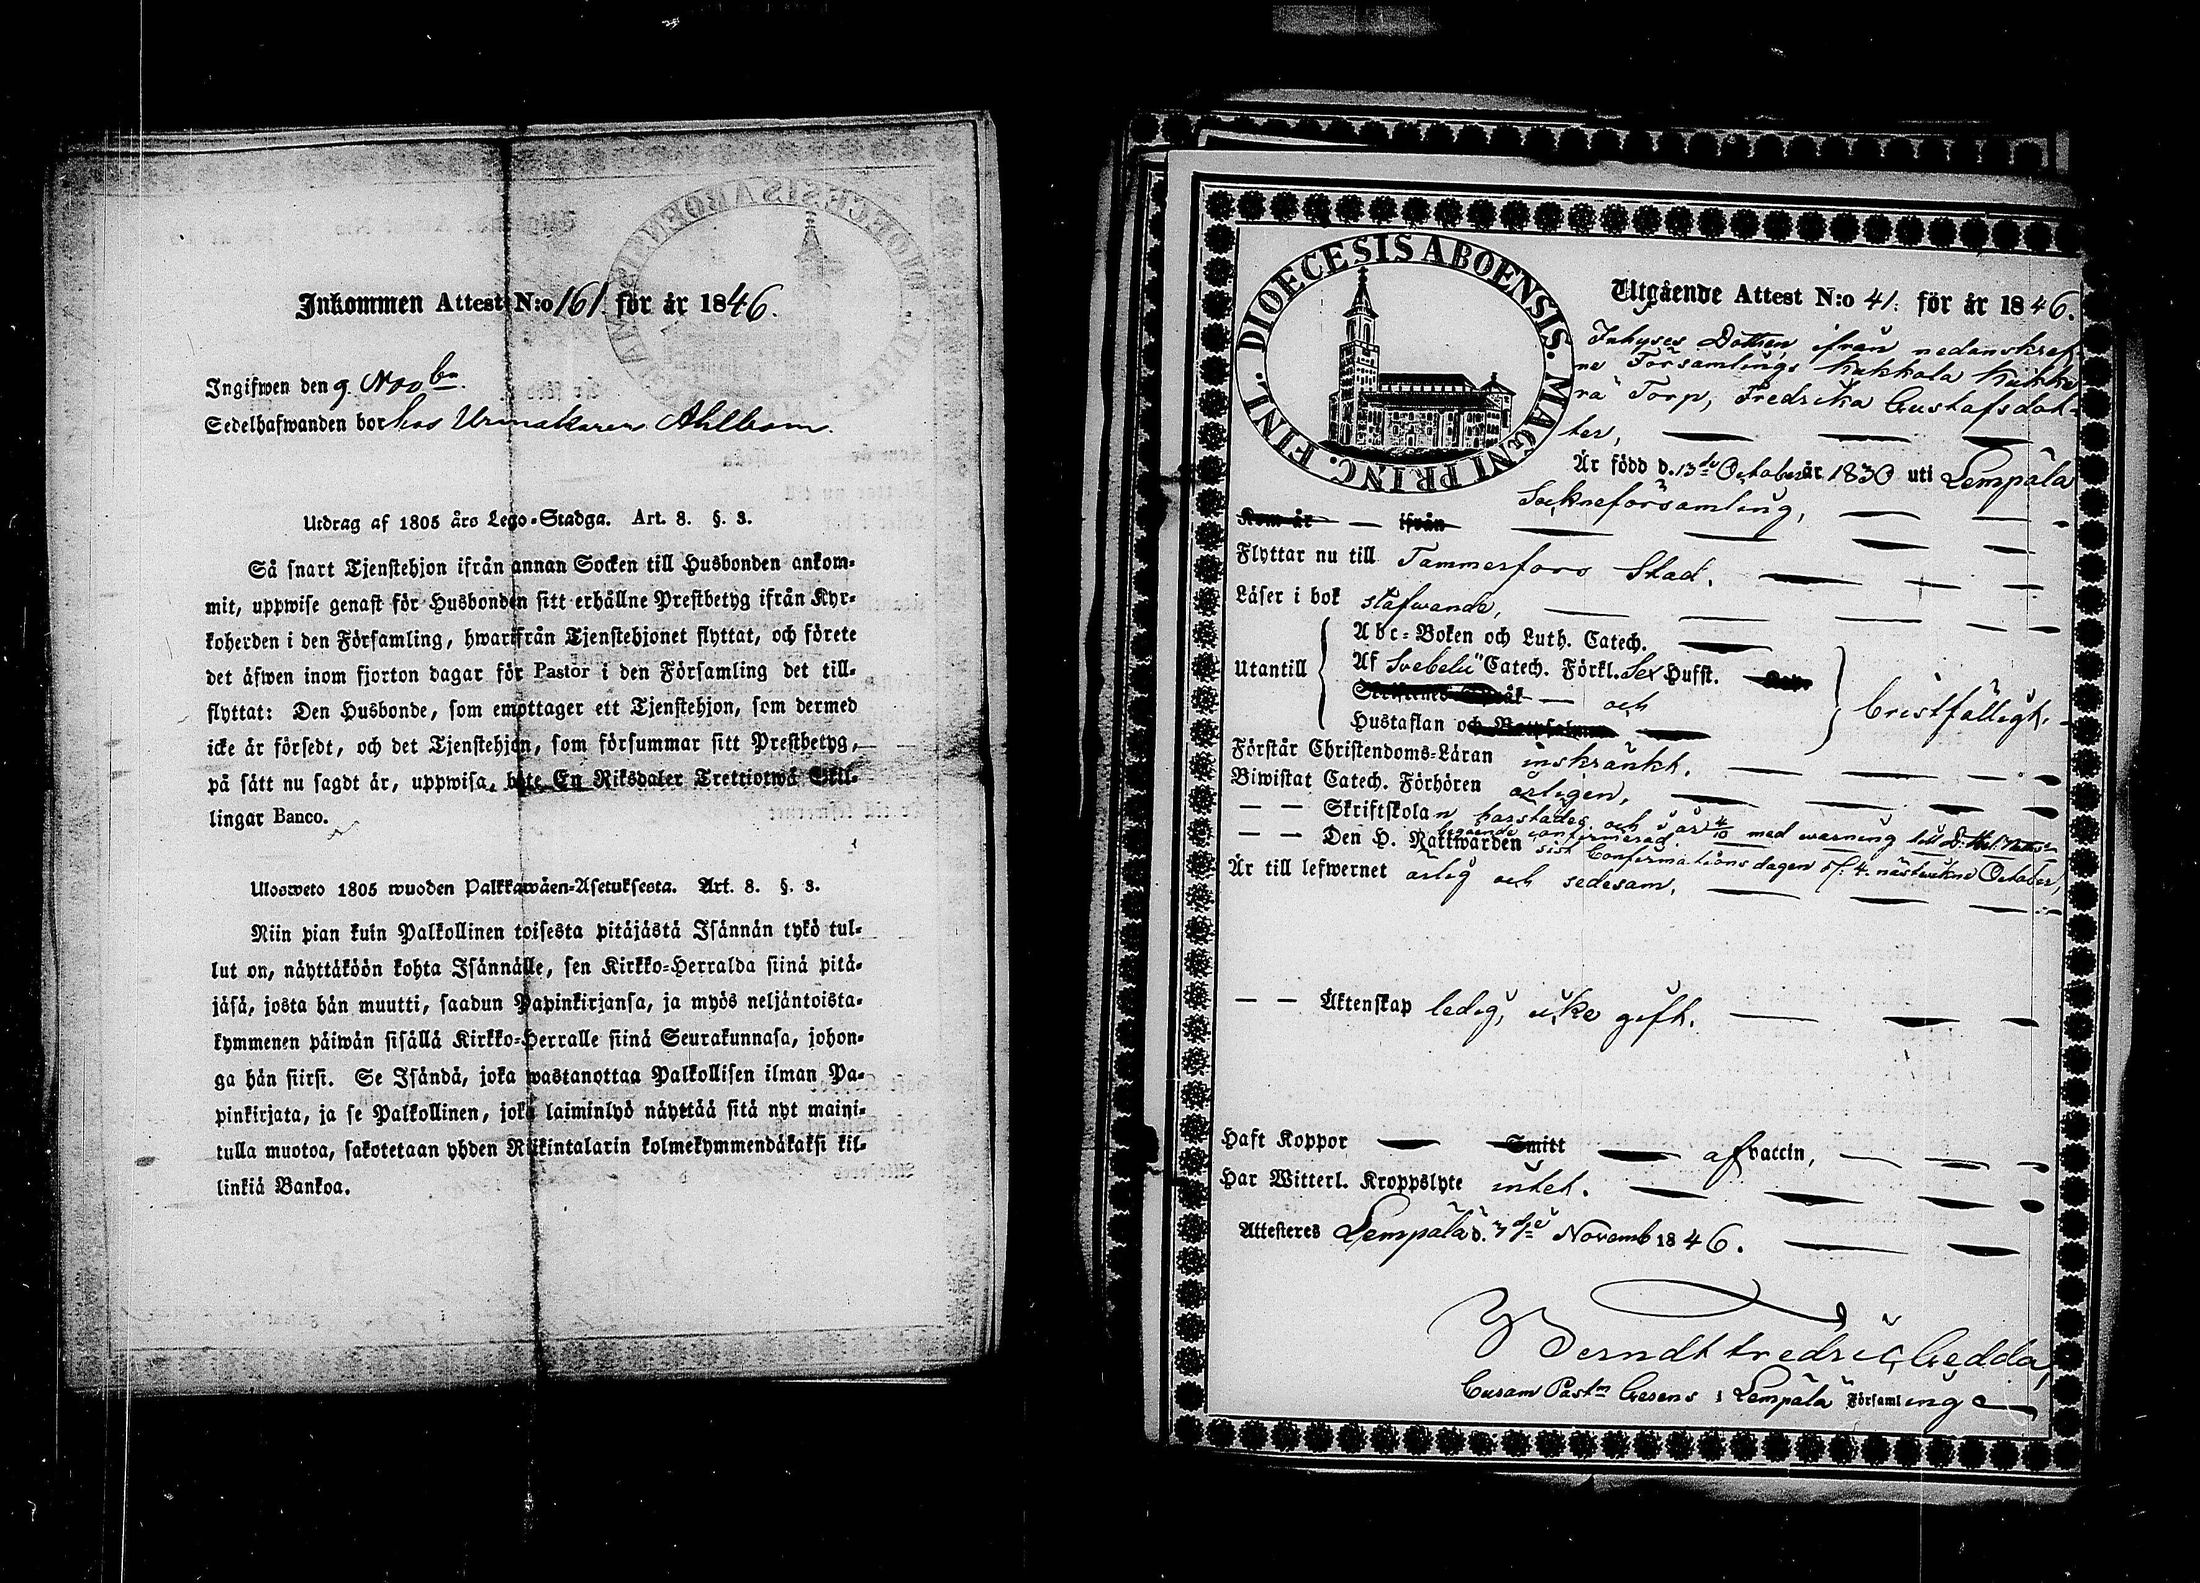 Inkommen Attest N:o 161. för år 1846.
Ingifwen den 9 Novbr.
Sedelhafwanden bor hos Urmakaren Ahlbom.
Utdrag af 1805 års Lego-Stadga. Art. 8. §. 3.
Så snart Tjenstehjon ifrån annan Socken till Husbonden ankom-
mit, uppwise genast för Husbonden sitt erhållne Prestbetyg ifrån Kyr-
koherden i den Församling, hwarifrån Tjenstehjonet flyttat, och förete
det äfwen inom fjorton dagar för Pastor i den Församling det till-
flyttat: Den Husbonde, som emottager ett Tjenstehjon, som dermed
icke är försedt, och det Tjenstehjon, som försummar sitt Prestbetyg,
på sätt nu sagdt är, uppwisa, böte En Riksdaler Trettiotwå Skil-
lingar Banco.
Ulosweto 1805 wuoden Palkkawäen-Asetuksesta. Art. 8. §. 3.
Niin pian kuin Palkollinen toisesta pitäjästä Isännän tykö tul-
lut on, näyttäköön kohta Isännälle, sen Kirkko-Herralda siinä pitä-
jäsä, josta hän muutti, saadun Papinkirjansa, ja myös neljäntoista-
kymmenen päiwän sisällä Kirkko-Herralle siinä Seurakunnasa, johon-
ga hän siirsi. Se Isändä, joka wastanottaa Palkollisen ilman Pa-
pinkirjata, ja se Palkollinen, joka laiminlyö näyttää sitä nyt maini-
tulla muotoa, sakotetaan yhden Riikintalarin kolmekymmendäkaksi kil-
linkiä Bankoa.
DIOECESIS ABOENSIS. MAGNI PRINC. FINL.
Utgående Attest N:o 41. för år 1846.
Inhyses Dottren ifrån nedanskref-
ne Församlings Kukkola Kukko
ra Torp, Fredrika Gustafsdot-
ter,
Är född d. 13de October år 1830 uti Lempälä
Sockneförsamling,
Kom år ifrån
Flyttar nu till Tammerfors Stad.
Läser i bok stafwande,
Abc-Boken och Luth. Catech.
Utantill Af Svebelii Catech. Förkl. Sex Hufst. bristfälligt.
och
Hustaflan och
Förstår Christendoms-Läran inskränkt.
Biwistat Catech. Förhören årligen,
Skriftskolan och i år 4/10 med warning till
Den H. Nattwarden sist Confirmationsdagen d. 4. nästwikne October,
Är till lefwernet ärlig och sedesam,
Äktenskap ledig, icke gift.
Haft Koppor Smitt af vaccin,
Har Witterl. Kroppslyte intet.
Attesteres Lempälä d. 7de Novemb 1846.
Berndt Fredric Gedda,
Curam Past:n Gerens i Lempälä Församling